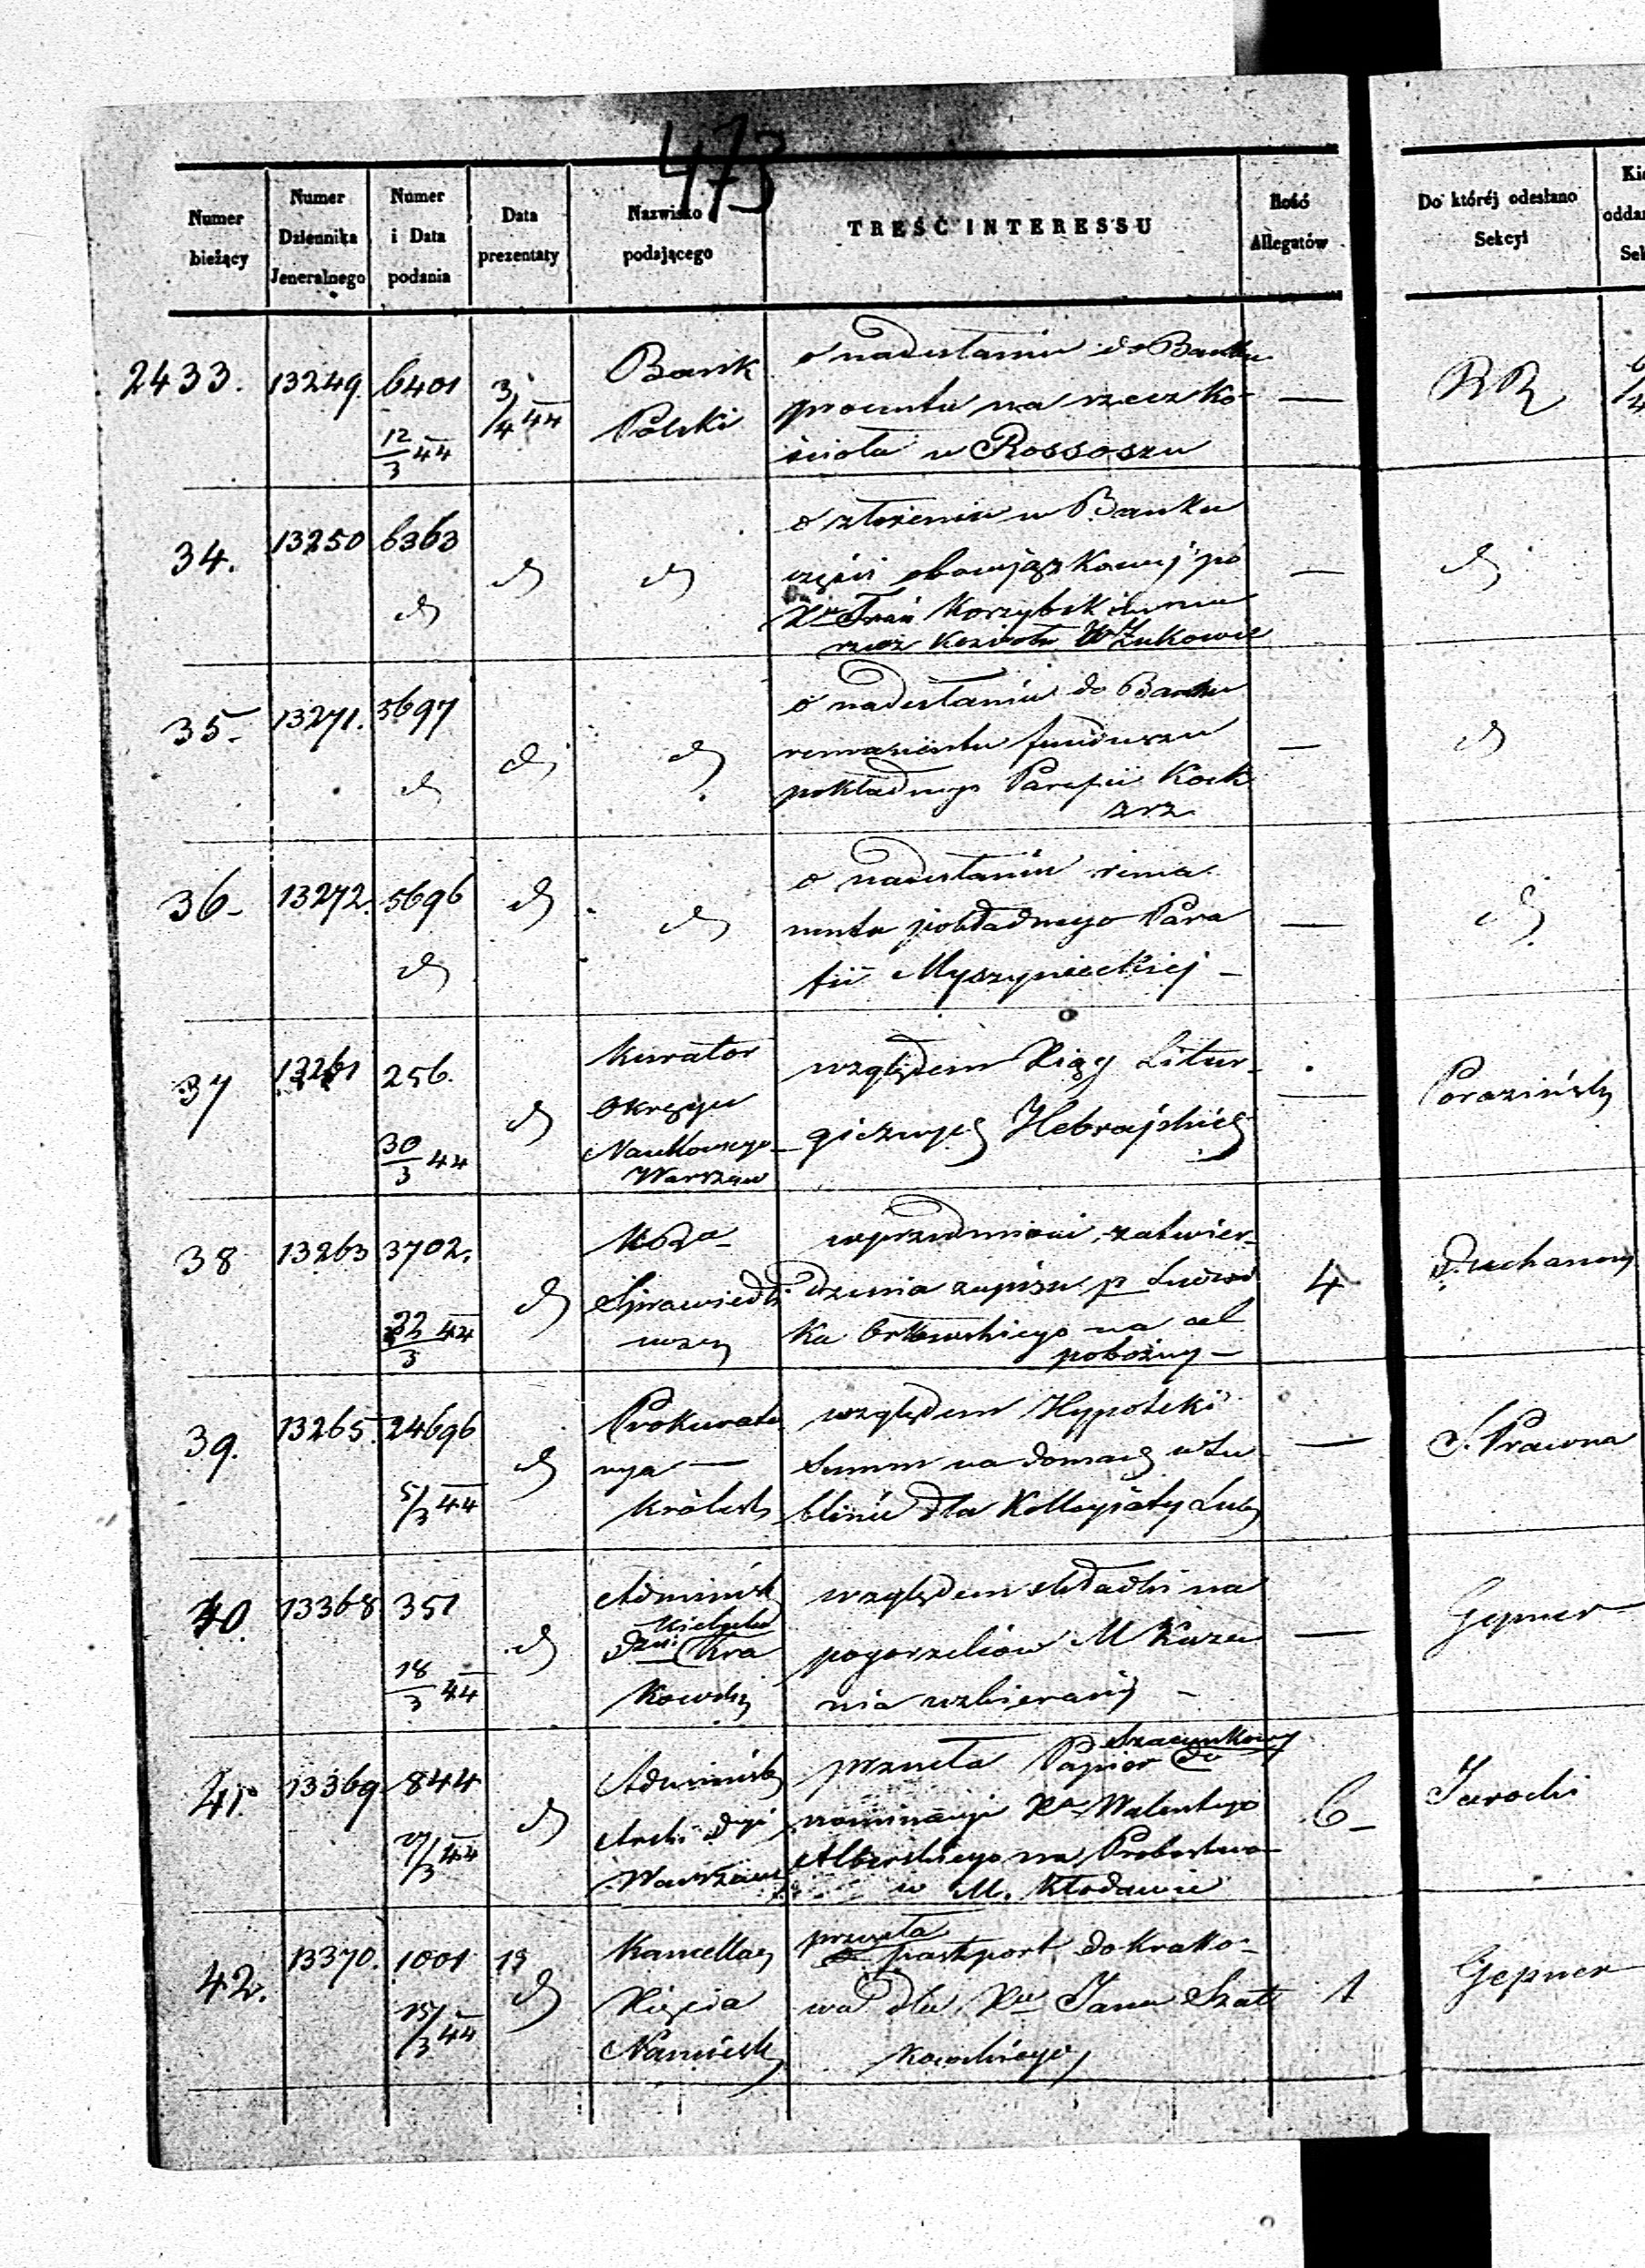 473
Numer bieżący
Numer Dziennika Jeneralnego
Numer i Data podania
Data prezentaty
Nazwisko podającego
TREŚĆ INTERESSU
Ilość Allegatów
Do któréj odesłano Sekcyi
2433. 13249. 6401 12/3 44 3/4 44
Bank
Polski
o nadesłanie do Banku
procentu na rzecz Ko-
ścioła w Rossoszu
— RR
34. 13250 6363 d d d
o złożeniu w Banku
części obowiązkowej po
Xu Fran Korzybskim na
rzecz Kościoła W Żukowie
— d
35. 13271. 5697 d d d
o nadesłaniu do Banku
remanentu funduszu
pokładnego Parafii Kock
— d
36. 13272. 5696 d d d
o nadesłaniu rema
nentu pokładnego Para
fii Myszynieckiej —
— d
37 13261 256. 30/3 44 d
Kurator
Okręgu
Naukowego
Warszaw
względem Xiąg Litur-
gicznych Hebrajskich
— Poraziński
38 13263 3702. 22/3 44 d
Sprawiedli
wości
w przedmiocie zatwier-
dzenia zapisu p Ludwi
ka na cel
pobożny —
4
39. 13265. 24696 5/3 44 d
Prokurato
rya —
Królests
względem Hypoteki
Summ na domach w Lu
blinie dla Kollegiaty Lub
— S. Prawna
40 13368 351 18/3 44 d
Administr
Dyec Kielecko
Kra
kowsk
względem składki na
pogorzelców M
nia wzbieranej —
— Gepner
41 13369 844 /3 44 d
Administr
Archi Dye
Warszaw
przesyła Papier Szacunkowy do
nominacyi Xa Walentego
Alberskiego na Probostwo
w M. Kłodawie
6 — Jarocki
42. 13370. 1001 15/3 44 19 d
Kancellar
Xięcia
Namiestn
przesyła
pasport do Krako-
wa dla Xa Jana Szat
kowskiego
1 Gepner